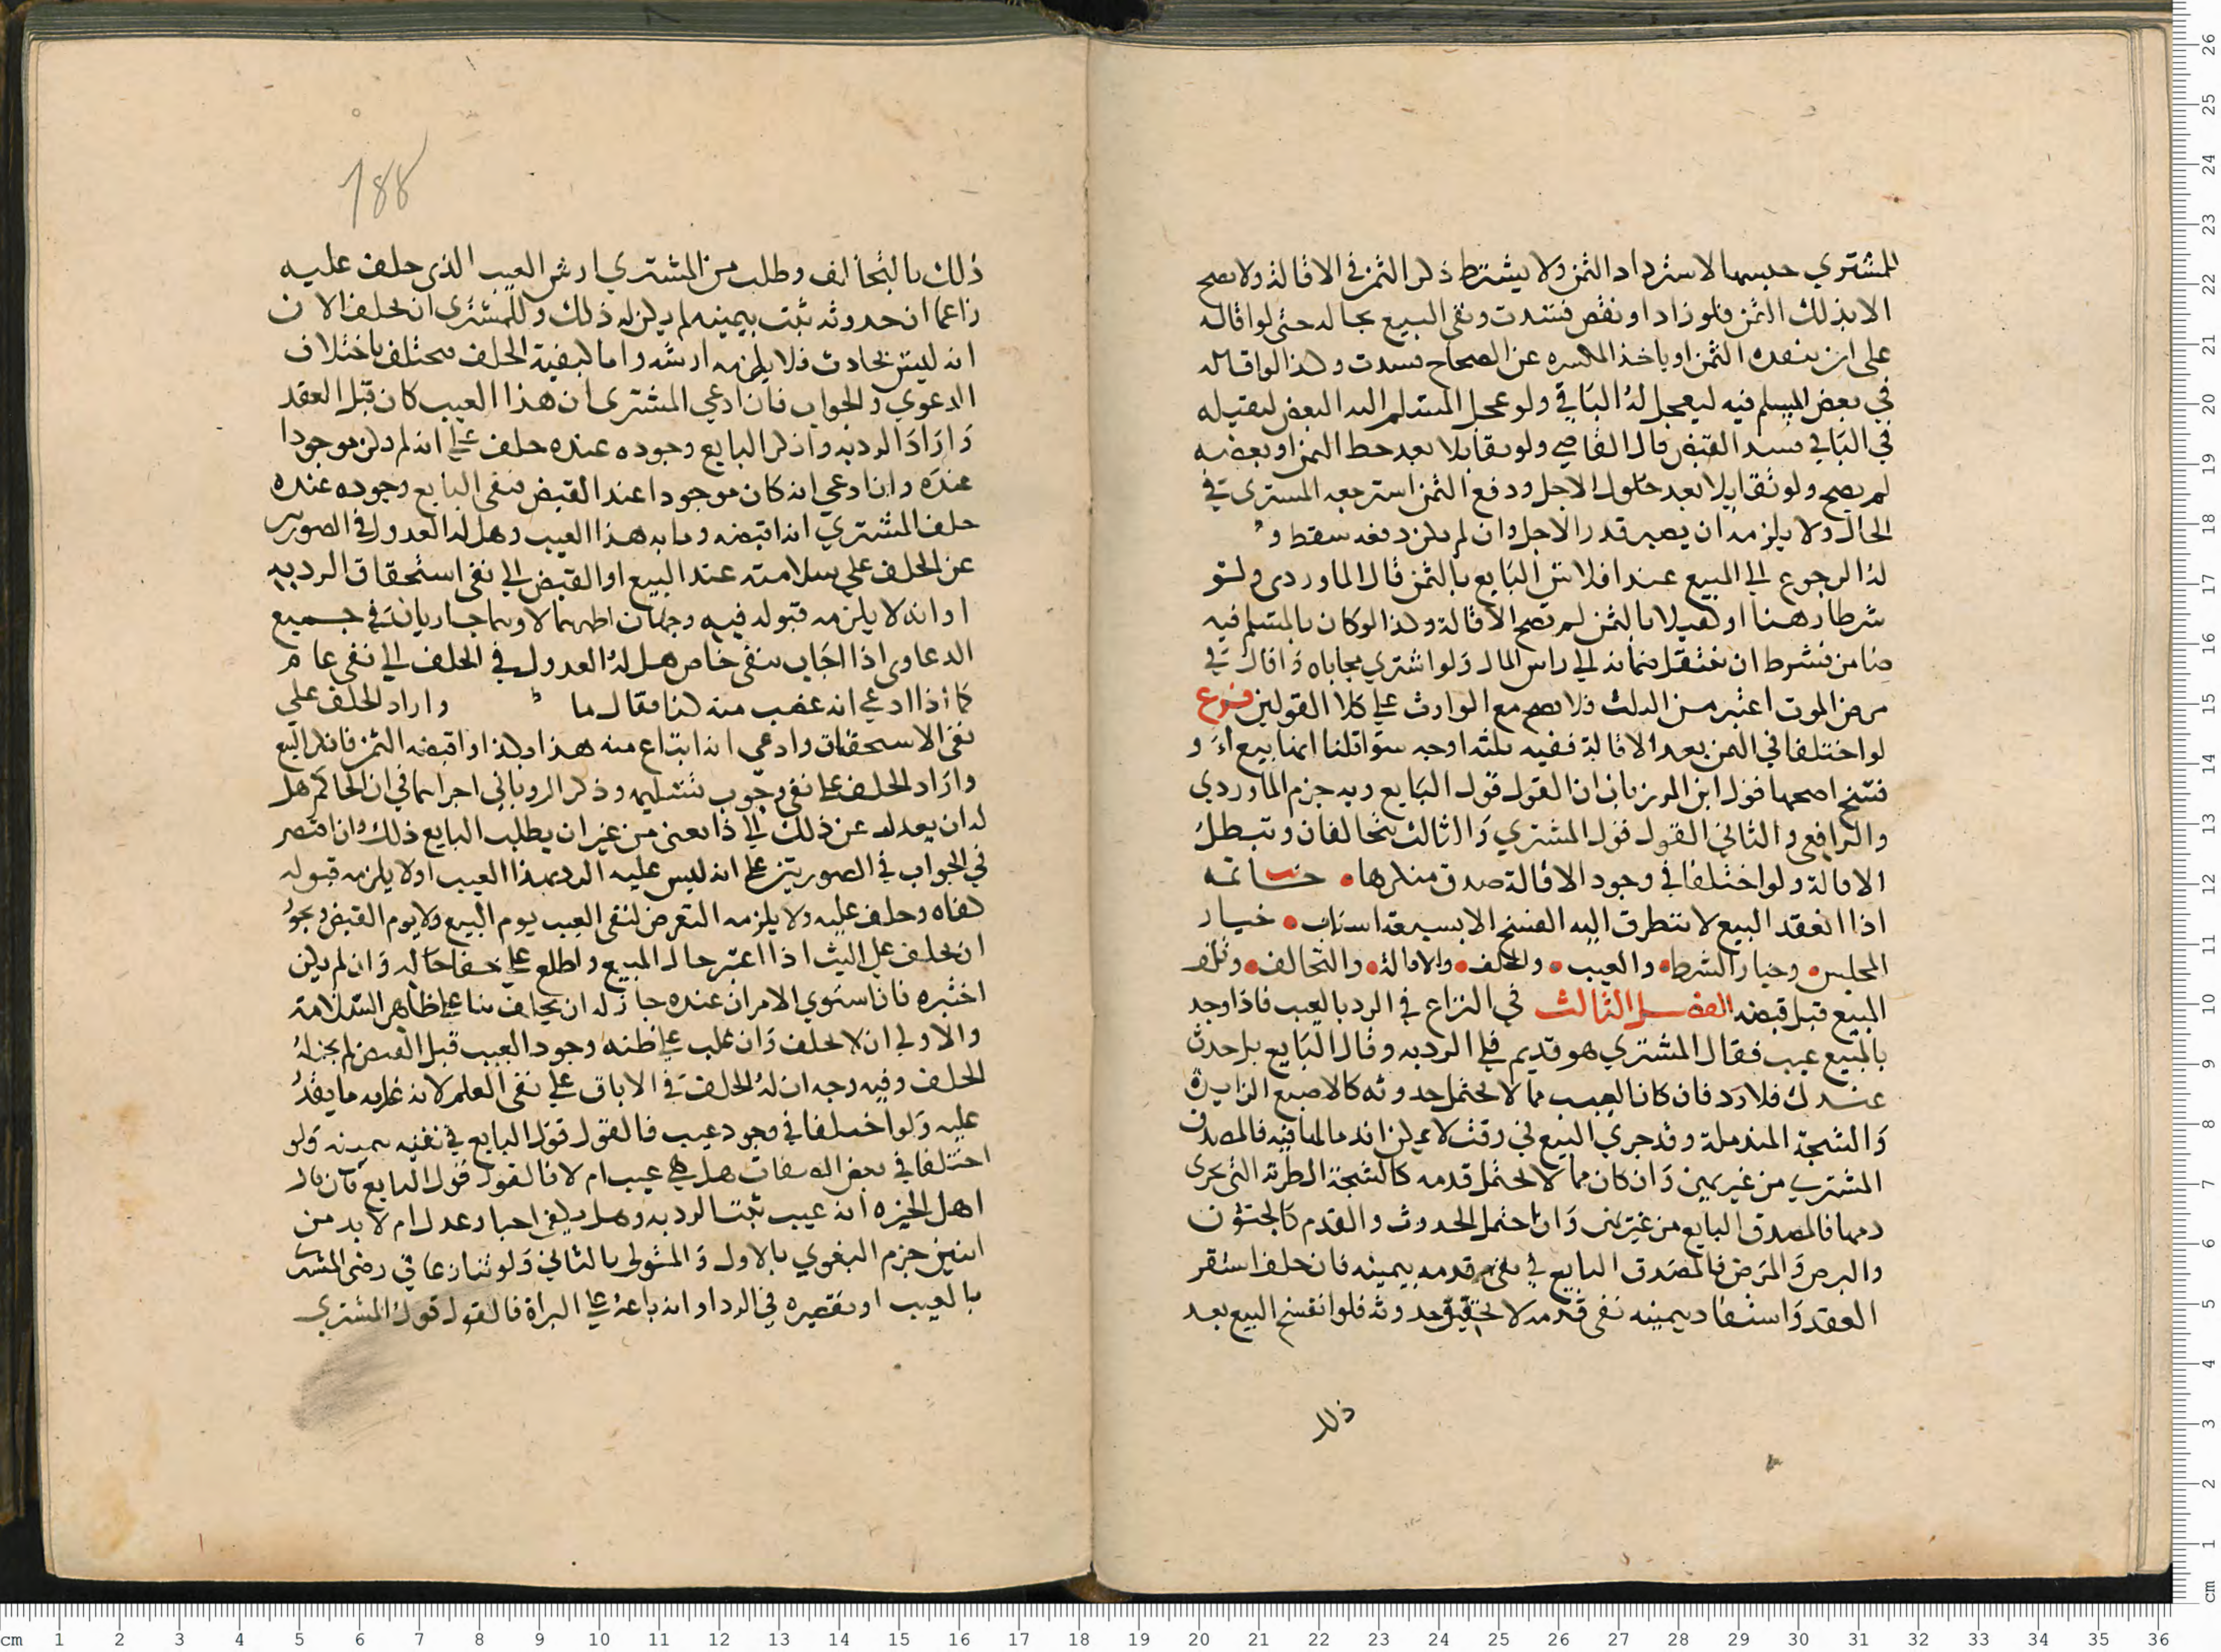 المشتري حبسها لاسترداد الثمن ولا يشترط ذكر الثمن في الاقالة ولا تصح
الا بذلك الثمن فلو زاد او نقص فسدت وبقى المبيع بحاله حتى لو اقاله
على ان ينقده الثمن او ياخذ المكسره عن الصحاح فسدت وكذا لو اقاله
في بعض المسلم فيه ليعجل له الباقي ولو عجل المسلم اليه البعض ليقيله
في الباقي فسد القبض قال القاضي ولو تقايلا بعد حط الثمن او بعضه
لم يصح ولو تقايلا بعد حلول الاجل ودفع الثمن استرجعه المشتري في
الحال ولا يلزمه ان يصبر قدر الاجل وان لم يكن دفعه سقط و
له الرجوع الي المبيع عند افلاس البايع بالثمن قال الماوردي ولو
شرطا رهنا او كفيلا بالثمن لم تصح الاقالة وكذا لو كان بالمسلم فيه
ضامن فشرط ان ينتقل ضمانه الي راس المال ولو اشتري بمحاباه واقال في
مرض الموت اعتبر من الثلث ولا تصح مع الوارث علي كلا القولين فرع
لو اختلفا في الثمن بعد الاقالة ففيه ثلثه اوجه سوا قلنا انها بيع او
فسخ اصحها قول ابن المرزبان ان القول قول البايع وبه جزم الماوردي
والرافعي والثاني القول قول المشتري والثالث يتحالفان وتبطل
الاقالة ولو اختلفا في وجود الاقالة صدق منكرها خاتمه
اذا انعقد البيع لا يتطرق اليه الفسخ الا بسبعة اسباب خيار
المجلس وخيار الشرط والعيب والخلف والاقالة والتحالف وتلف
المبيع قبل قبضه الفصل الثالث في النزاع في الرد بالعيب فاذا وجد
بالمبيع عيب فقال المشتري هو قديم فلي الرد به وقال البايع بل حدث
عندك فلا رد فان كان العيب مما لا يحتمل حدوثه كالاصبع الزايدة
والشجة المندملة وقد جري البيع في وقت لا يمكن اندمالها فيه فالمصدق
المشتري من غير يمين وان كان مما لا يحتمل قدمه كالشجة الطرية التي يجري
دمها فالمصدق البايع من غير يمين وان احتمل الحدوث والقدم كالجنون
والبرص والمرض فالمصدق البايع في نفي قدمه بيمينه فان حلف استقر
العقد واستفاد بيمينه نفي قدمه لا تحقيق حدوثه فلو انفسخ البيع بعد
ذلك
188
ذلك بالتحالف وطلب من المشتري ارش العيب الذي حلف عليه
زاعما ان حدوثه ثبت بيمينه لم يكن له ذلك وللمشتري ان يحلف الان
انه ليس بحادث فلا يلزمه ارشه واما كيفية الحلف فتختلف باختلاف
الدعوي والجواب فان ادعي المشتري ان هذا العيب كان قبل العقد
واراد الرد به وانكر البايع وجوده عنده حلف علي انه لم يكن موجودا
عنده وان ادعي انه كان موجودا عند القبض فنفي البايع وجوده عنده
حلف المشتري انه اقبضه وما به هذا العيب وهل له العدول في الصورتين
عن الحلف علي سلامته عند البيع او القبض الي نفي استحقاق الرد به
او انه لا يلزمه قبوله فيه وجهان اظهرهما لا وهما جاريان في جميع
الدعاوي اذا اجاب بنفي خاص هل له العدول في الحلف الي نفي عام
كما اذا ادعي انه غصب منه كذا فقال ما واراد الحلف علي
نفي الاستحقاق وادعي انه ابتاع منه هذا بكذا واقبضه الثمن فانكر البيع
واراد الحلف علي نفي وجوب تسليمه وذكر الروياني اجراهما في ان الحاكم هل
له ان يعدل عن ذلك الي ذا يعني من غير ان يطلب البايع ذلك وان اقتصر
في الجواب في الصورتين علي انه ليس عليه الرد بهذا العيب او لا يلزمه قبوله
كفاه وحلف عليه ولا يلزمه التعرض لنفي العيب يوم البيع ولا يوم القبض ويجوز
ان يحلف علي البت اذا اختبر حال المبيع واطلع علي خفا حاله وان لم يكن
اختبره فان استوي الامران عنده جاز له ان يحلف بنا علي ظاهر السلامة
والاولي ان لا يحلف وان غلب علي ظنه وجود العيب قبل القبض لم يجز له
الحلف وفيه وجه ان له الحلف في الاباق علي نفي العلم لانه غايه ما يقدر
عليه ولو اختلفا في وجود عيب فالقول قول البايع في نفيه بيمينه ولو
اختلفا في بعض الصفات هل هي عيب ام لا فالقول قول البايع فان قال
اهل الخبرة انه عيب ثبت الرد به وهل يكفي اخبار عدل ام لا بد من
اثنين جزم البغوي بالاول والمتولي بالثاني ولو تنازعا في رضي المشتري
بالعيب او تقصيره في الرد او انه باعه علي البراة فالقول قول المشتري